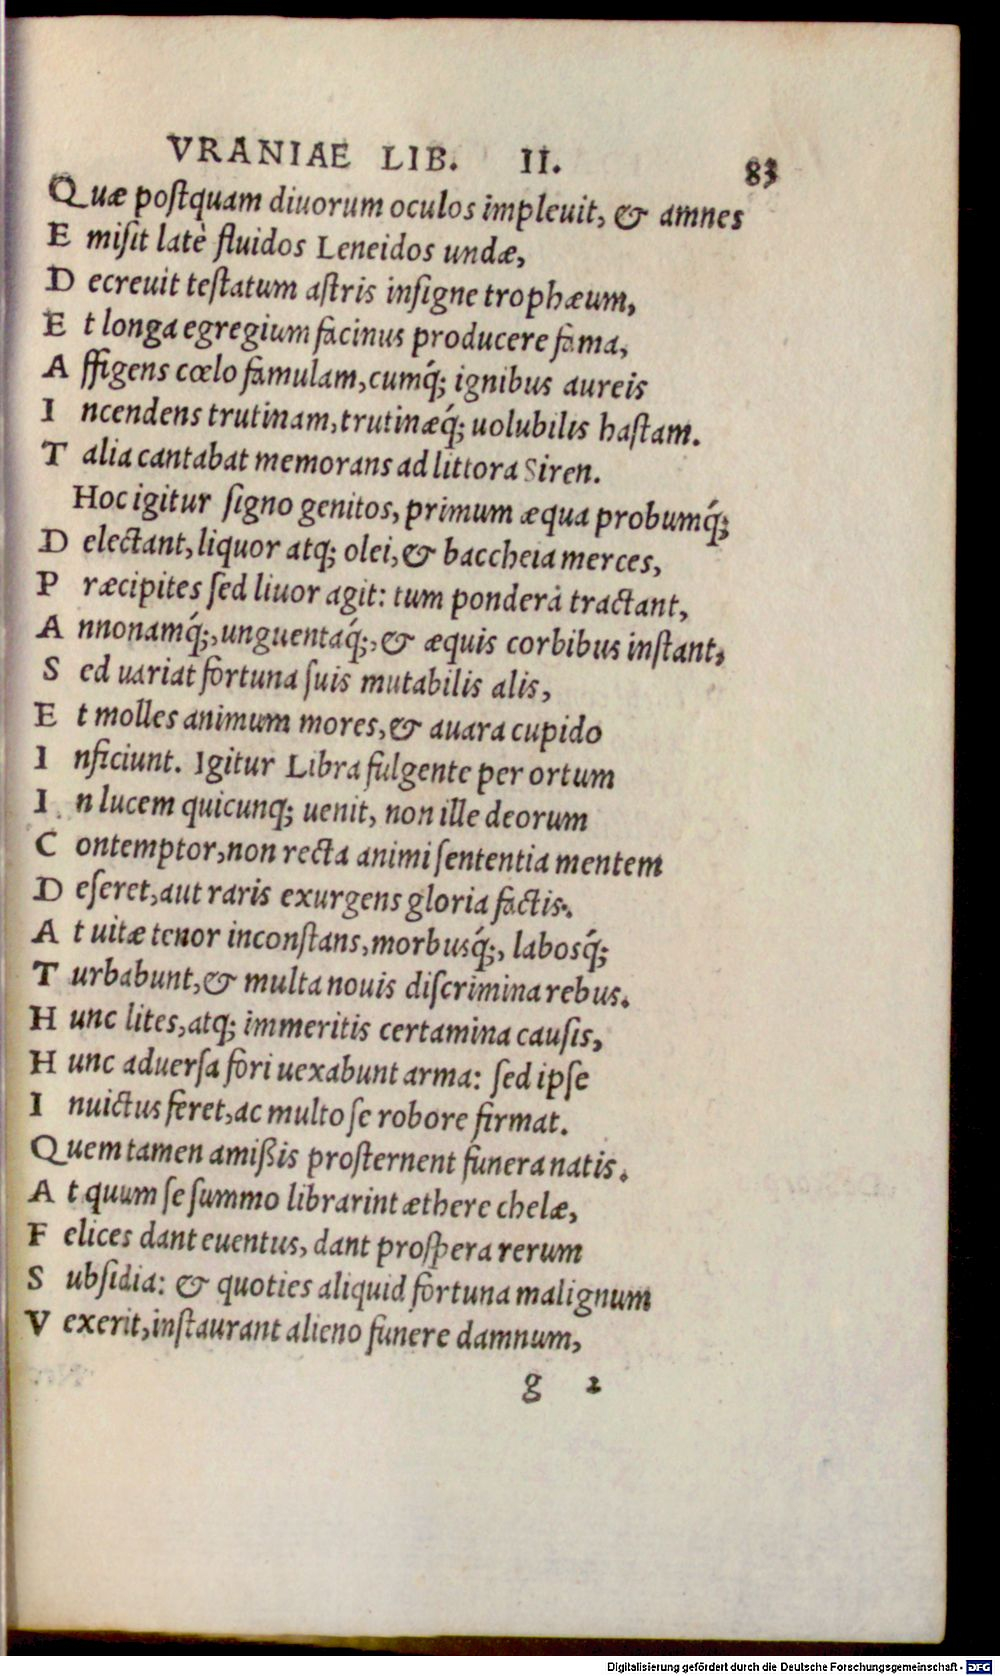 VRANIAE LIB. II. 83
Quæ postquam diuorum oculos impleuit, & amnes
E misit latè fluidos Leneidos undæ,
D ecreuit testatum astris insigne trophæum,
E t longa egregium facinus producere fama,
A ffigens cœlo famulam, cumq́; ignibus aureis
I ncendens trutinam, trutinæq́; uolubilis hastam.
T alia cantabat memorans ad littora Siren.
Hoc igitur signo genitos, primum æqua probumq́;
D electant, liquor atq; olei, & baccheia merces,
P ræcipites sed liuor agit: tum ponderà tractant,
A nnonamq́;, unguentaq́;, & æquis corbibus instant,
S ed uariat fortuna suis mutabilis alis,
E t molles animum mores, & auara cupido
I nficiunt. Igitur Libra fulgente per ortum
I n lucem quicunq; uenit, non ille deorum
C ontemptor, non recta animi sententia mentem
D eseret, aut raris exurgens gloria factis.
A t uitæ tenor inconstans, morbusq́;, labosq́;
T urbabunt, & multa nouis discrimina rebus.
H unc lites, atq; immeritis certamina causis,
H unc aduersa fori uexabunt arma: sed ipse
I nuictus feret, ac multo se robore firmat.
Quem tamen amißis prosternent funera natis.
A t quum se summo librarint æthere chelæ,
F elices dant euentus, dant prospera rerum
S ubsidia: & quoties aliquid fortuna malignum
V exerit, instaurant alieno funere damnum,
g 2
Digitalisierung gefördert durch die Deutsche Forschungsgemeinschaft - DFG